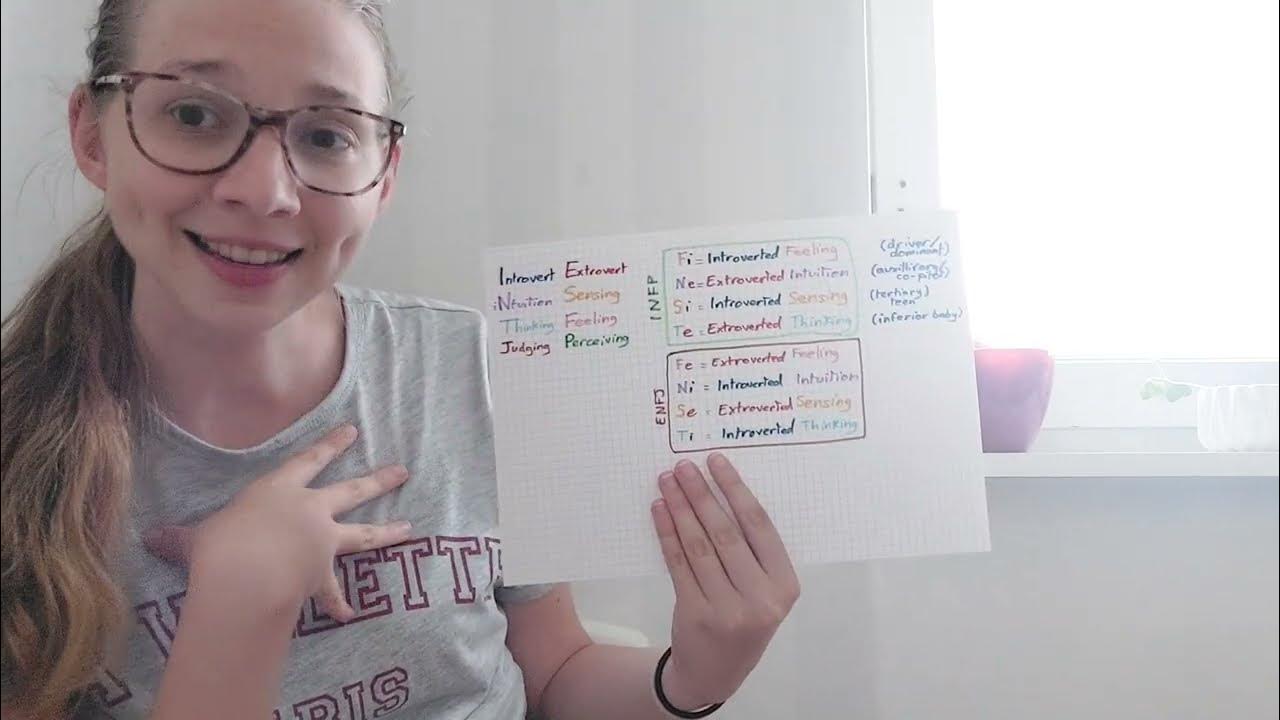 Introvert Extrovert
iNtuition Sensing
Thinking Feeling
Judging Perceiving
INFP
Fi = Introverted Feeling
Ne = Extroverted Intuition
Si = Introverted Sensing
Te = Extroverted Thinking
(driver/
dominant)
co-pilot)
(tertiary)
teen
(inferior baby)
ENFJ
Fe = Extroverted Feeling
Ni = Introverted Intuition
Se = Extroverted Sensing
Ti = Introverted Thinking